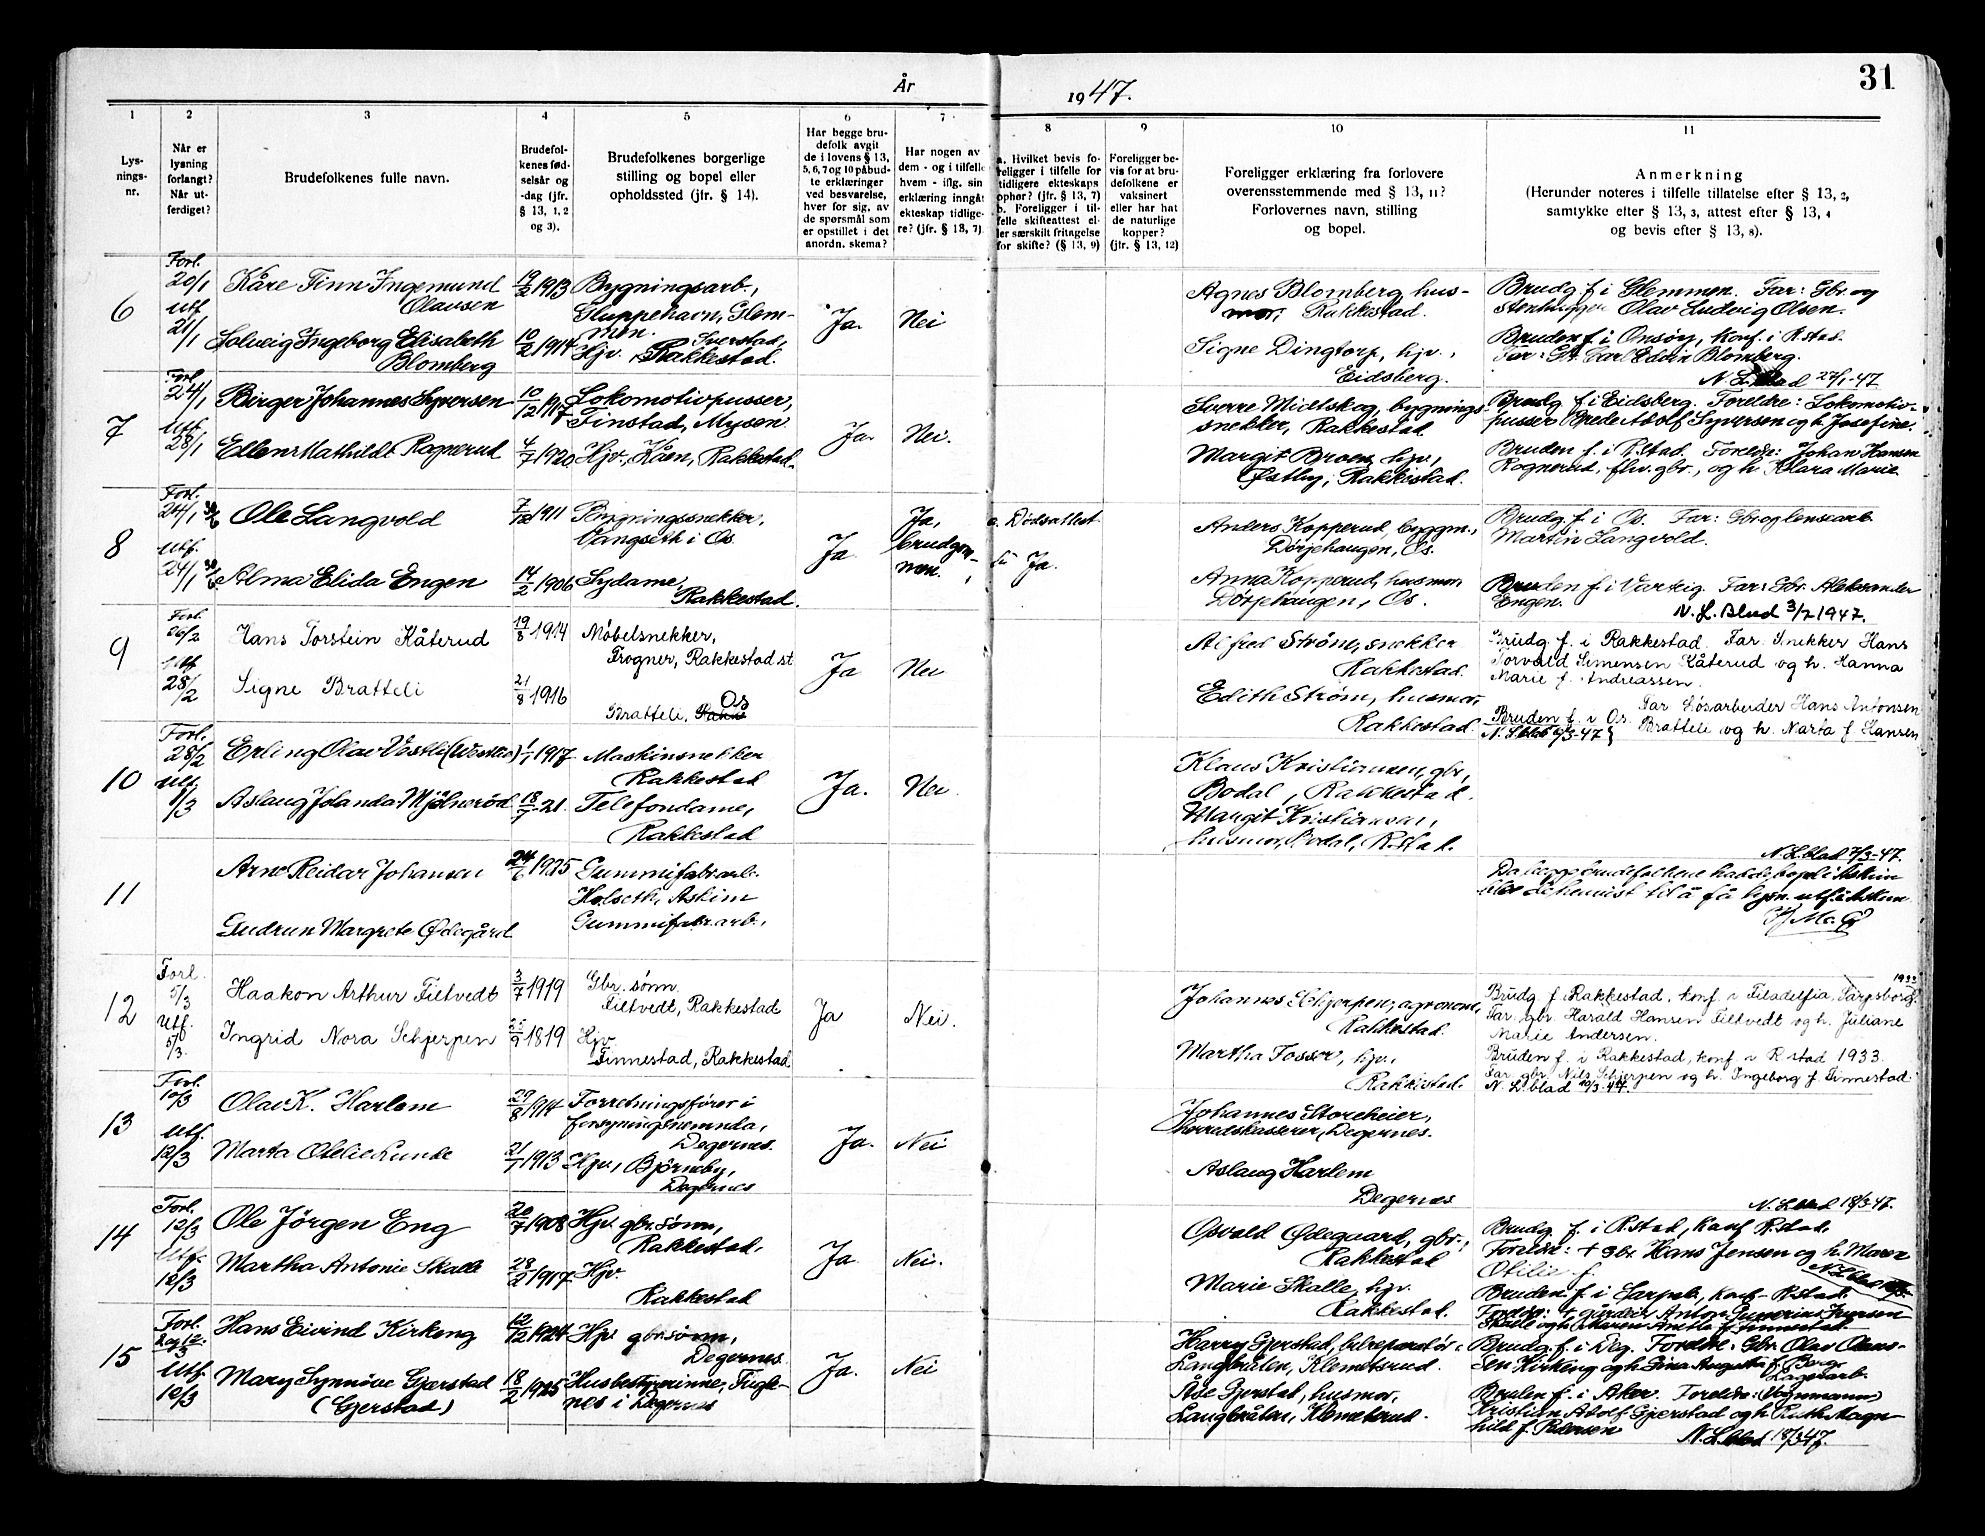 År
1947.
31
1
2
3
4
5
6
7
8
9
10
11
Lys-
nings-
nr.
Når er
lysning
forlangt?
Når ut-
ferdiget?
Brudefolkenes fulle navn.
Brudefol-
kenes fød-
selsår og
-dag (jfr.
§ 13, 1, 2
og 3).
Brudefolkenes borgerlige
stilling og bopel eller
opholdssted (jfr. § 14).
Har begge bru-
defolk avgit
de i lovens § 13,
5, 6, 7 og 10 påbud-
te erklæringer
ved besvarelse,
hver for sig, av
de spørsmål som
er opstillet i det
anordn. skema?
Har nogen av
dem - og i tilfelle
hvem - iflg. sin
erklæring inngått
ekteskap tidlige-
re? (jfr. § 13, 7).
a. Hvilket bevis fo-
religger i tilfelle for
tidligere ekteskaps
ophør? (jfr. § 13, 7)
b. Foreligger i til-
felle skifteattest el-
ler særskilt fritagelse
for skifte? (§ 13, 9)
Foreligger be-
vis for at bru-
defolkene er
vaksinert
eller har hat
de naturlige
kopper?
(jfr. § 13, 12)
Foreligger erklæring fra forlovere
overensstemmende med § 13, 11?
Forlovernes navn, stilling
og bopel.
Anmerkning
(Herunder noteres i tilfelle tillatelse efter § 13, 2,
samtykke efter § 13, 3, attest efter § 13, 4
og bevis efter § 13, 8).
6
Forl.
20/1
Utf.
21/1
Kåre Finn Ingemund
Olavsen
19/2 1913
Bygningsarb.,
Gluppehavn, Glem-
men.
Solveig Ingeborg Elisabeth
Blomberg
10/2 1914
Sverstad,
Hjv., Rakkestad.
Ja.
Nei
Agnes Blomberg, hus-
mor, Rakkestad.
Signe Dingtorp, hjv.,
Eidsberg.
Brudg. f. i Glemmen. Far: Gbr. og
stenhugger Olav Ludvig Olsen.
Bruden f. i Onsøy, konf. i R.stad.
Far: Gbr. Carl Edvin Blomberg.
N. L. Blad 27/1-47
7
Forl.
24/1
Utf.
28/1
Birger Johannes Syversen
10/12 1917
Lokomotivpusser,
Finstad, Mysen
Ellen Mathilde Rognerud
4/7 1920
Hjv., Kåen, Rakkestad.
Ja.
Nei.
Sverre Midtskog, bygnings-
snekker, Rakkestad.
Margit Braen, hjv.,
Østby, Rakkestad.
Brudg. f. i Eidsberg. Foreldre: Lokomotiv-
pusser Brede Adolf Syversen og h. Josefine.
Bruden f. i R.stad. Foreldre: Johan Hansen
Rognerud, fhv. gbr., og h. Klara Marie
8
Forl.
24/1 30/6
Utf.
24/1 30/6
Ole Langvold
7/12 1911
Bygningssnekker,
Vangseth i Os
Alma Elida Engen
14/2 1906
Sydame,
Rakkestad.
Ja
Ja,
brudgom-
men.
a. Dødsattest
b. Ja.
Anders Kopperud, byggm.,
Dørjehaugen, Os.
Anna Kopperud, husmor
Dørjehaugen, Os.
Brudg. f. i Os. Far: Gbr. og lensearb.
Martin Langvold.
Bruden f. i Varteig. Far: Gbr. Aleksander
Engen.
N. L. Blad 3/7 1947.
9
Forl.
26/2
Utf.
28/2
Hans Torstein Kåterud
19/8 1914
Møbelsnekker,
Frogner, Rakkestad st
Signe Bratteli
21/8 1916
Os
Bratteli,
Ja
Nei
Alfred Strøm, snekker
Rakkestad.
Edith Strøm, husmor,
Rakkestad.
Brudg. f. i Rakkestad. Far Snekker Hans
Torvald Simensen Kåterud og h. Hanna
Marie f. Andreassen.
Far Løsarbeider Hans Antonsen
Bruden f. i Os. Bratteli og h. Marta f. Hansen
N. L. blad 4/3-47
10
Forl.
28/2
Utf.
1/3
Erling Olav Vestli (Westlie)
1/1 1917
Maskinsnekker
Rakkestad
Aslaug Jolanda Mjølnerød
18/7-21.
Telefondame,
Rakkestad
Ja.
Nei.
Klaus Kristiansen, gbr.,
Bodal, Rakkestad.
Margit Kristiansen,
husmor, Bodal, R.stad.
N. L. blad 7/3-47.
11
Arne Reidar Johansen
24/6 1925
Gummifabr.arb.
Holseth, Askim
Gudrun Margrete Ødegård
Gummifabr.arb.,
Da begge brudefolkene hadde bopel i Askim
ble de henvist til å få lysn. utf. i Askim
12
Forl.
5/3
Utf.
5/3.
Haakon Arthur Filtvedt
3/7 1919
Gbr. sønn.
Filtvedt, Rakkestad
Ingrid Nora Schjerpen
25/9 1819
Hjv.
Finnestad, Rakkestad
Ja
Nei.
Johannes Schjerpen, agronom,
Rakkestad.
Martha Fosser, hjv.,
Rakkestad.
1933
Brudg. f. i Rakkestad, konf. i Filadelfia, Sarpsborg.
Far gbr. Harald Hansen Filtvedt og h. Juliane
Marie Andersen.
Bruden f. i Rakkestad, konf. i R.stad 1933.
Far gbr. Nils Schjerpen og h. Ingeborg f. Finnestad.
N. L. blad 10/3-47.
13
Forl.
10/3
Utf.
12/3
Olav K. Harlem
29/8 1914
Forretningsfører i
forsyningsnemnda,
Degernes.
Marta Otilie Lunde
21/1 1913
Hjv., Björneby,
Degernes
Ja.
Nei
Johannes Storeheier,
herredskasserer, Degernes.
Aslaug Harlem
Degernes
N. L. blad 18/3-47.
14
Forl.
12/3
Utf.
12/3
Ole Jörgen Eng
20/7 1908
Hjv. gbr.sønn,
Rakkestad.
Martha Antonie Skalle
28/2 1917
Hjv.
Rakkestad
Ja.
Nei.
Osvald Ødegaard, gbr.,
Rakkestad
Marie Skalle, hjv.
Rakkestad.
Brudg. f. i R.stad, konf. R.stad.
Foreldre: + gbr. Hans Jensen og h. Maren
Otilie f.
Bruden f. i Sarpsb., konf. R.stad.
Foreldre: + gårdeier Anton
Skalle og h. Maren Amalie f. Finnestad.
15
Forl.
Utf.
12/3
Hans Eivind Kirkeng
12/12 1924
Hjv. gbr.sønn,
Degernes.
Mary Synnöve Gjerstad
(Gjerstad)
18/2 1925
Husbestyrerinne, Fugle-
nes i Degernes
Ja.
Nei
Harry Gjerstad, bilreparatør
Langbråten, Klemetsrud.
Åse Gjerstad, husmor,
Langbråten, Klemetsrud.
Brudg. f. i Deg. Foreldre: Gbr. Olav Olav-
sen Kirkeng og h. Gina Augusta f. Berg.
Lagerarb.
Bruden f. i Aker. Foreldre: (Vognmann)
Kristian Adolf Gjerstad og h. Ruth Magn-
hild f. Pedersen
N. L. blad 18/3 47.